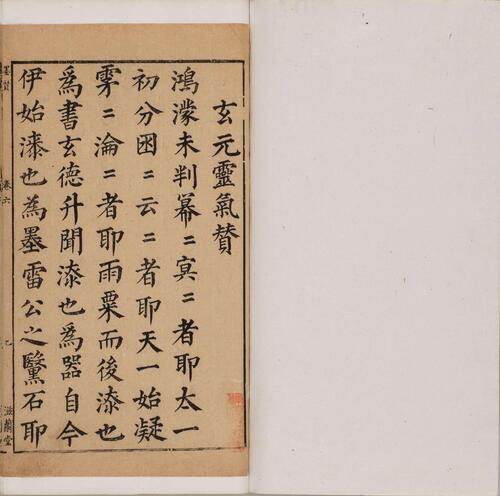 玄元靈氣贊
鴻濛未判冪〻冥〻者耶太一
初分囦〻云〻者耶天一始凝
雰〻淪〻者耶雨粟而後漆也
爲書玄德升聞漆也爲器自今
伊始漆也為墨雷公之黳石耶
卷六
滋蘭堂